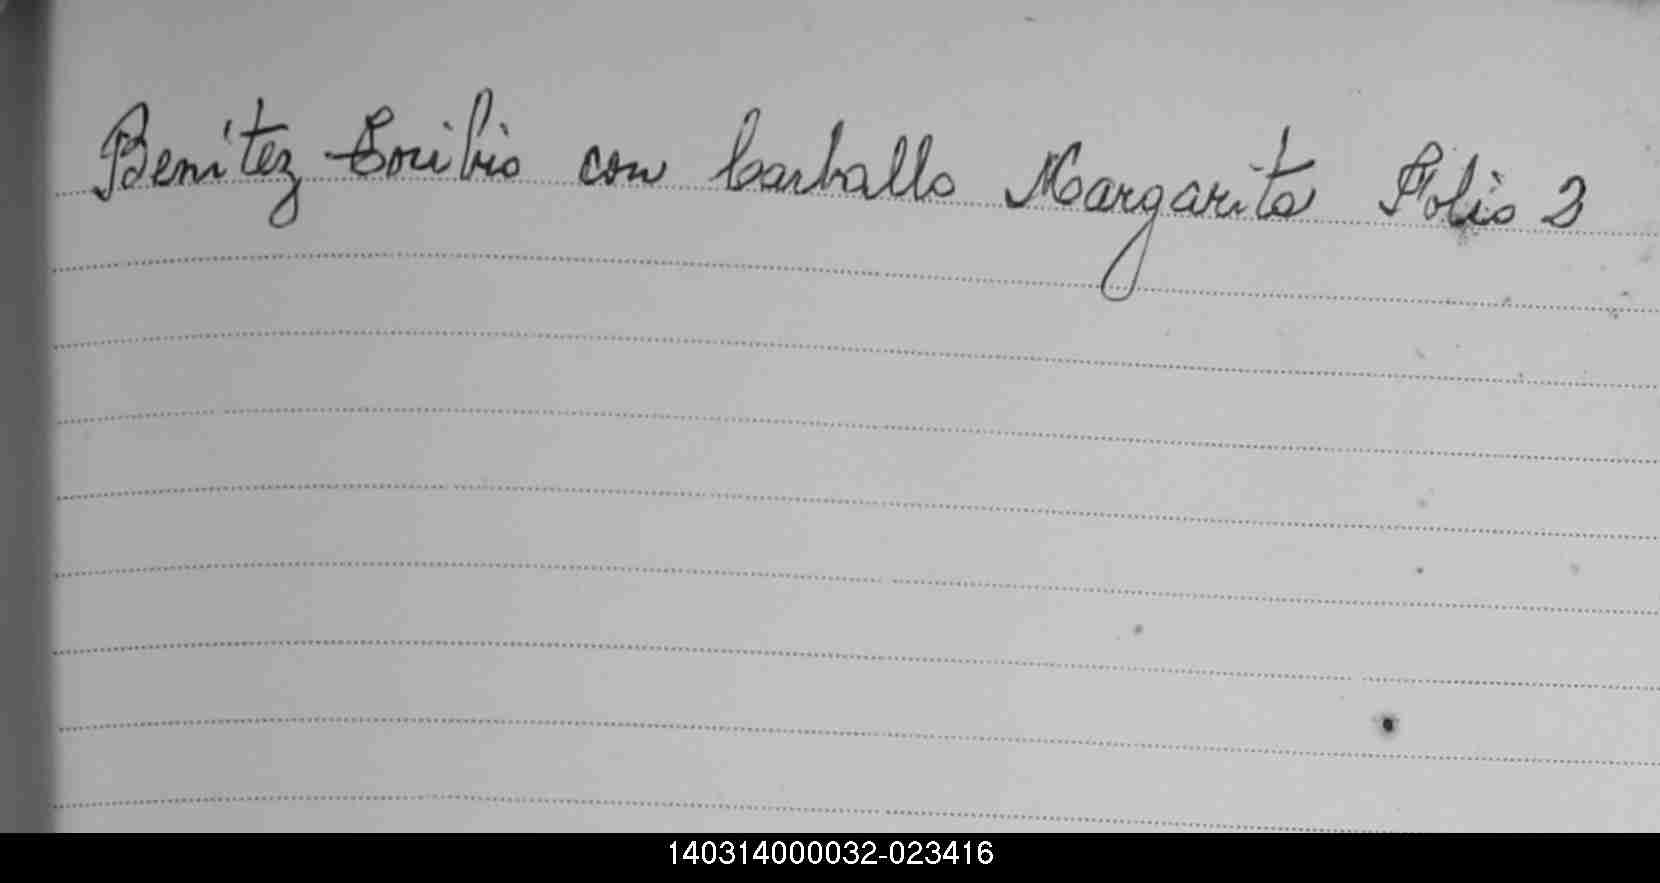 Benitez Emilio con Carballo Margarita Folio 2
140314000032-023416